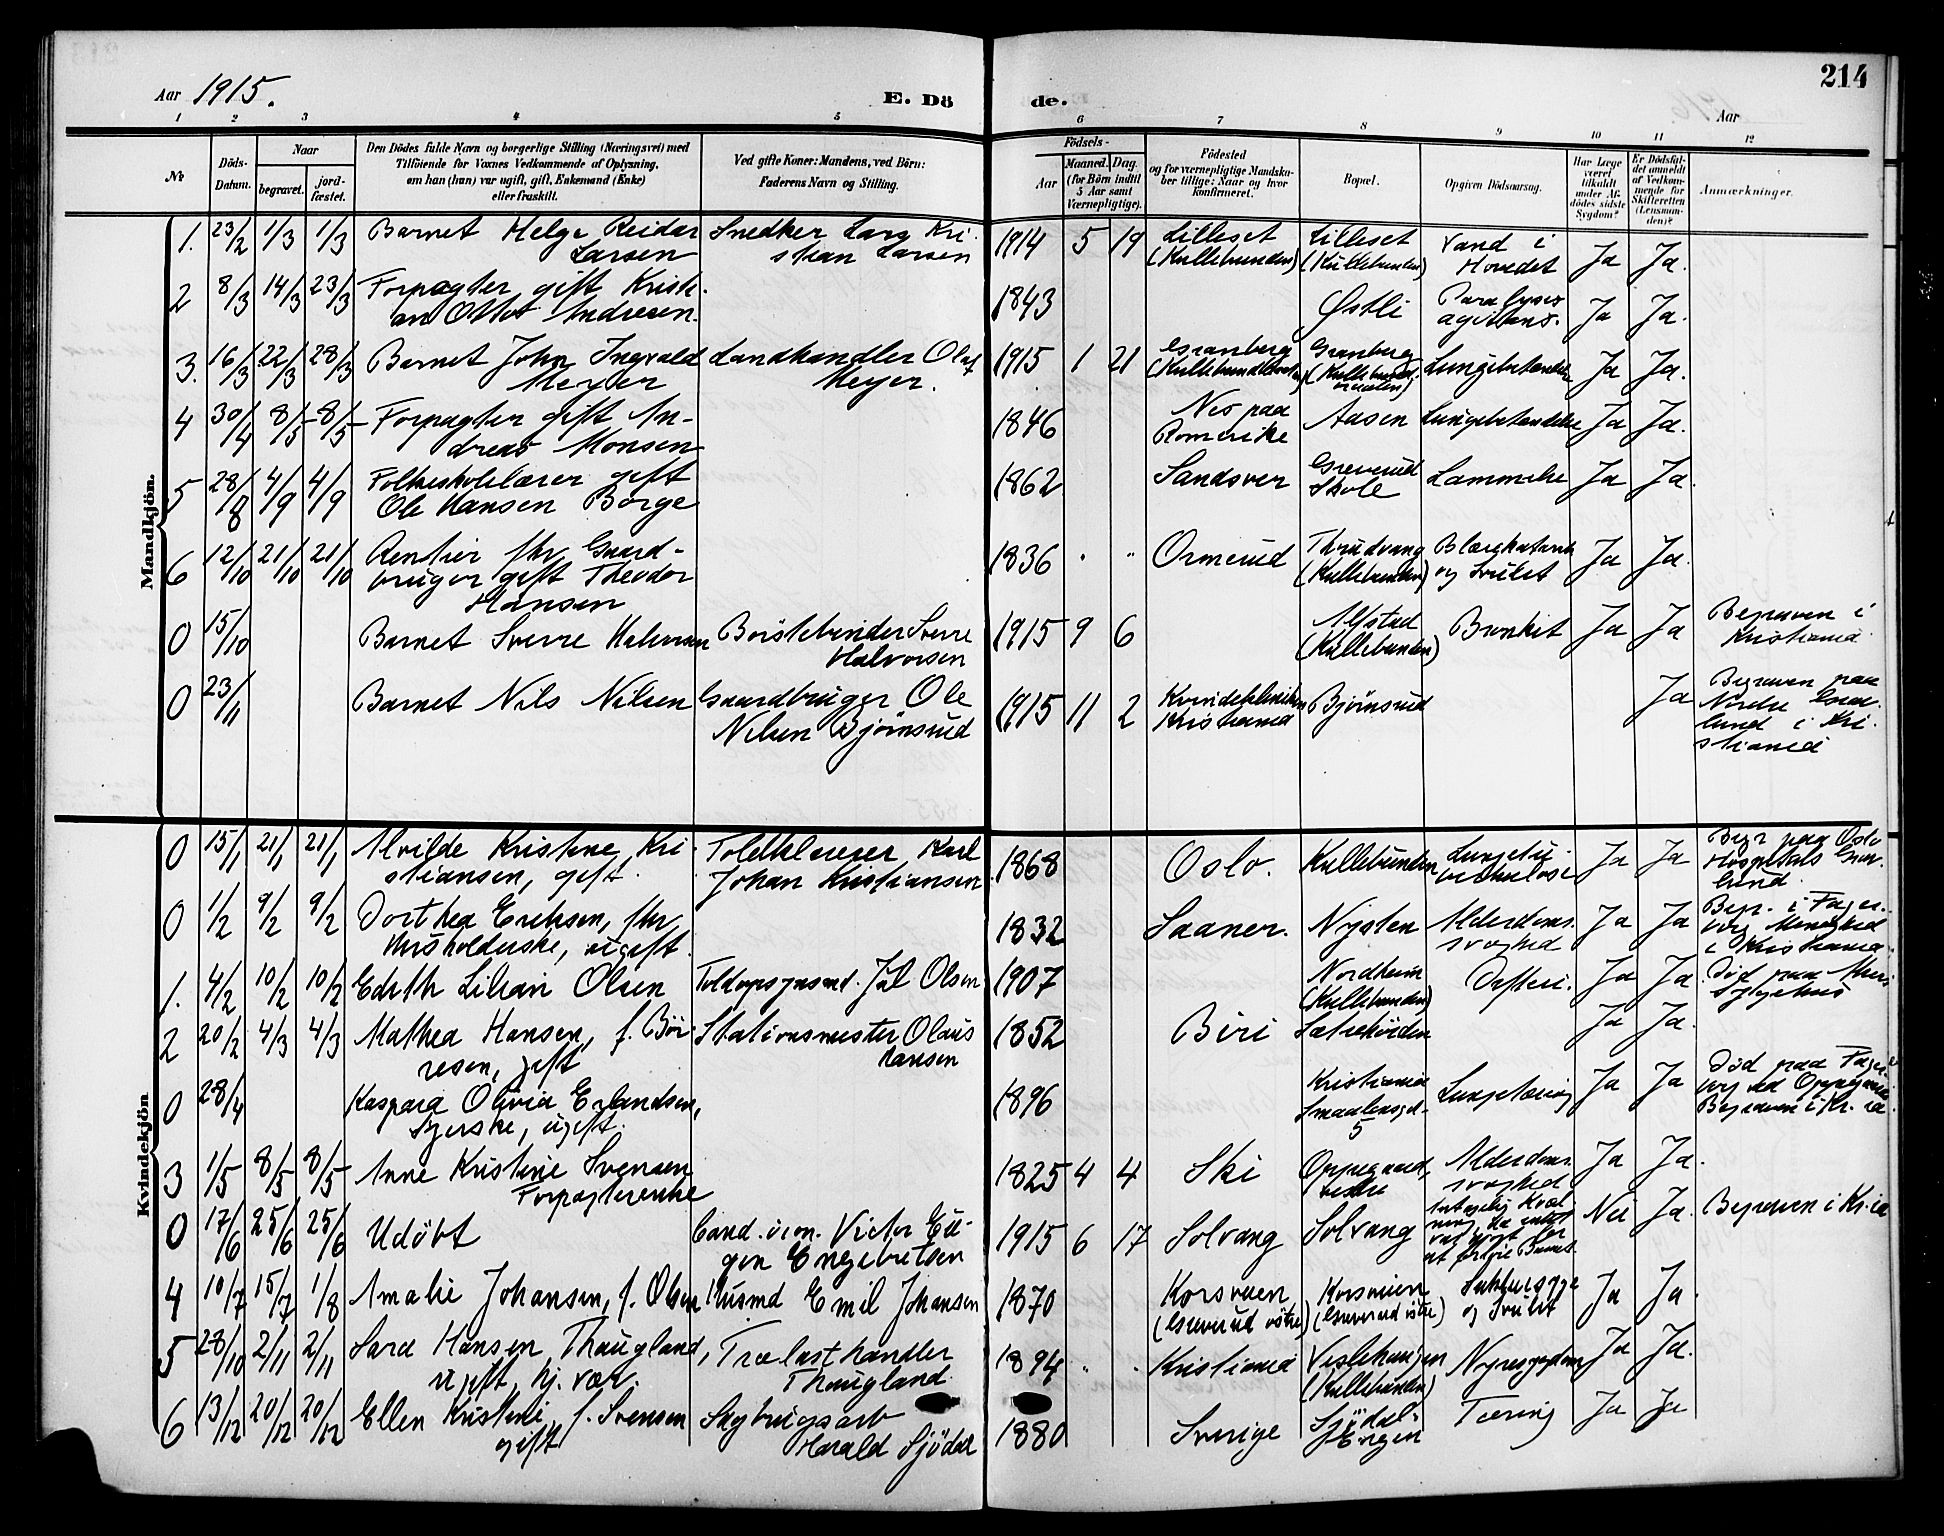 214
Aar 1915.
E. Dö de.
Aar
1 2 3 4 5 6 7 8 9 10 11 12
No
Döds-Datum.
Naar
begravet.
jord-fæstet.
Den Dödes fulde Navn og borgerlige Stilling (Næringsvei) med
Tilföiende for Voxnes Vedkommende af Oplysning,
om han (hun) var ugift, gift, Enkemand (Enke)
eller fraskilt.
Ved gifte Koner: Mandens, ved Börn:
Faderens Navn og Stilling.
Födsels-
Aar
Maaned. Dag.
(for Börn indtil
5 Aar samt
Værnepligtige).
Födested
og for værnepligtige Mandskaber tillige: Naar og hvor
konfirmeret.
Bopæl.
Opgiven Dödsaarsag.
Har Læge
været
tilkaldt
under Afdödes sidste
Sygdom?
Er Dödsfaldet anmeldt
af Vedkommende for
Skifteretten
(Lensmanden)?
Anmærkninger.
Mandkjön.
1. 23/2 1/3 1/3 Barnet Helge Reidar Larsen Snedker Lars Kristian Larsen 1914 5 19 Lilleset (Kullebunden) Lilleset (Kullebunden) Vand i Hovedet Ja Ja.
2 8/3 14/3 23/3 Forpagter gift Kristian Andresen. 1843 Østli Paralysis agitans. Ja Ja.
3. 16/3 22/3 28/3 Barnet John Ingvald Meyer Landhandler Olaf Meyer. 1915 1 21 Granberg Granberg Lungebetændelse Ja Ja.
4 30/4 8/5 8/5 Forpagter gift Andreas Monsen 1846 Nes paa Romerike Aasen Lungebetændelse Ja Ja.
5 28/8 4/9 4/9 Folkeskolelærer gift Ole Hansen Borge 1862 Sandsver Greverud Skole Lammelse Ja Ja.
6 12/10 21/10 21/10 Rentier fhv. Gaardbruger gift Theodor Hansen 1836 " " Ormerud Thrudvang (Kullebunden) Blærekatarrh og Svulst Ja Ja.
0 15/10 Barnet Sverre Halvorsen Börstebinder Sverre Halvorsen 1915 9 6 (Kullebunden) Bronkit Ja Ja Begraven i Kristiania
0 23/11 Barnet Nils Nilsen Gaardbruger Ole Nilsen Bjørnsrud 1915 11 2 Kvindeklinikken Kristiania Bjørnsrud Ja Begraven paa Nordre Gravlund i Kristiania
Kvindekjön
0 15/1 21/1 21/1 Alvilde Kristine Kristiansen, gift. Toldklarerer Karl Johan Kristiansen 1868 Oslo. Kullebunden Lungetuberkulose Ja Ja Begr paa Oslo Hospitals Gravlund.
0 1/2 9/2 9/2 Dorthea Eriksen, fhv. Husholderske, ugift. 1832 Saaner. Nysten Alderdomssvaghed Ja Ja Begr. i Fagerborg Menighed i Kristiania.
1. 4/2 10/2 10/2 Edith Lilian Olsen Toldopsynsmd. Jul Olsen 1907 Nordheim (Kullebunden) Difteri. Ja Ja. Død paa Akers Sygehus
2 20/2 4/3 4/3 Mathea Hansen, f. Börresen, gift Stationsmester Olaus Hansen 1852 Biri Ja Ja.
0 28/4 Kaspara Olivia Erlandsen, Syerske, ugift. 1896 Kristiania Smaalensgd. 5 Lungetæring Ja Ja Død paa Fagervor ved Oppegaard. Begraven i Kr.ia
3 1/5 8/5 8/5 Anne Kristine Svensen Forpagterenke 1825 4 4 Ski Oppegaard, vestre Alderdomssvaghed Ja Ja.
0 17/6 25/6 25/6 Udöbt Cand. oecon. Victor Eugen Engebretsen 1915 6 17 Solvang Solvang Nei Ja. Begraven i Kr.ia
4 10/7 15/7 1/8 Amalie Johansen, f. Olsen Husmd Emil Johansen 1870 Korsveien (Greverud östre) Korsveien (Greverud östre) Sukkersyge og Svulst Ja Ja.
5 28/10 2/11 2/11 Sara Hansen Thaugland, ugift, hj. vær. Trælasthandler Thaugland 1894 " " Kristiania Veslehaugen (Kullebunden) Nyresygdom Ja Ja.
6 13/12 20/12 20/12 Ellen Kristine, f. Svensen gift Sagbrugsarb Harald Sjödal 1880 Sverige Sjödal-Engen Tæring Ja Ja